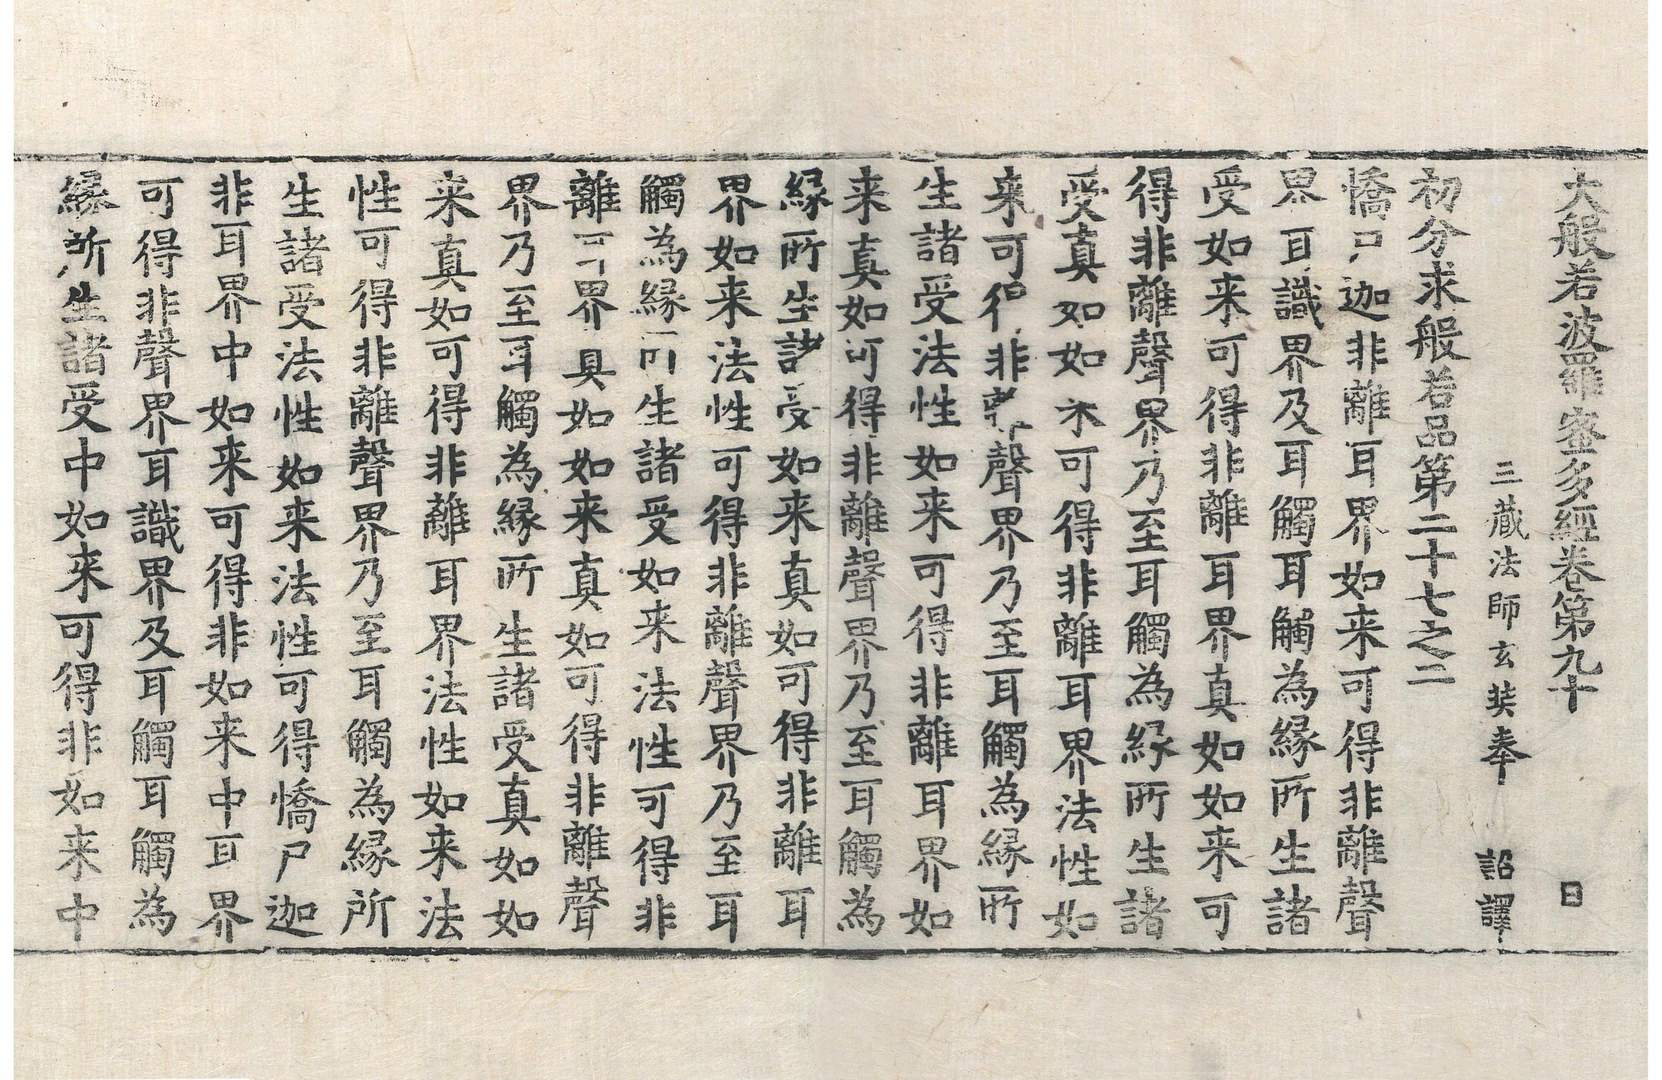 大般若波羅蜜多經卷第九十 日
三藏法師玄奘奉 詔譯
初分求般若品第二十七之二
憍尸迦非離耳界如来可得非離聲
界耳識界及耳觸耳觸為縁所生諸
受如来可得非離耳界真如如来可
得非離聲界乃至耳觸為縁所生諸
受真如如来可得非離耳界法性如
来可得非離聲界乃至耳觸為縁所
生諸受法性如来可得非離耳界如
来真如可得非離聲界乃至耳觸為
縁所生諸受如来真如可得非離耳
界如来法性可得非離聲界乃至耳
觸為縁所生諸受如来法性可得非
離耳界真如如来真如可得非離聲
界乃至耳觸為縁所生諸受真如如
来真如可得非離耳界法性如来法
性可得非離聲界乃至耳觸為縁所
生諸受法性如来法性可得憍尸迦
非耳界中如来可得非如来中耳界
可得非聲界耳識界及耳觸耳觸為
縁所生諸受中如来可得非如来中